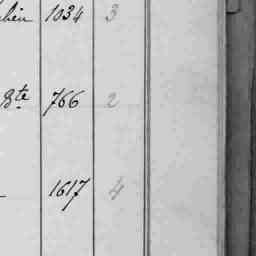 1034 3
Bte 766 2
1617 4